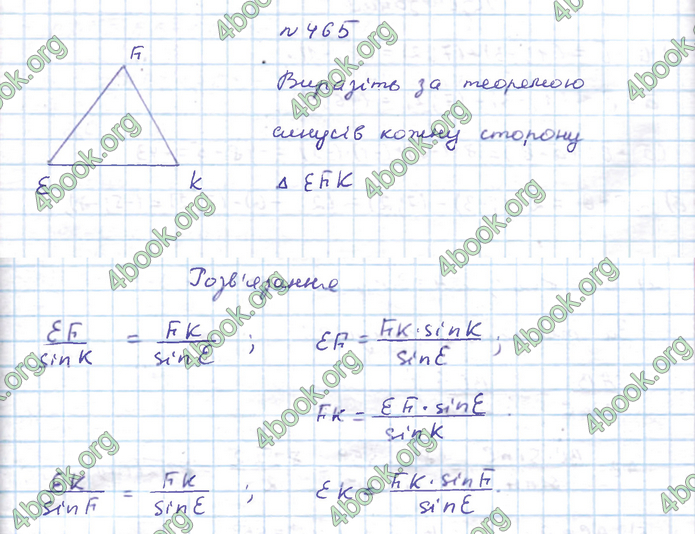 № 465
F
Виразіть за теоремою
синусів кожну сторону
E K
Δ EFK
Розв'язання
EF/sin K = FK/sin E ; EF = FK·sin K/sin E ;
FK = EF·sin E/sin K
EK/sin F = FK/sin E ; EK = FK·sin F/sin E .
4book.org